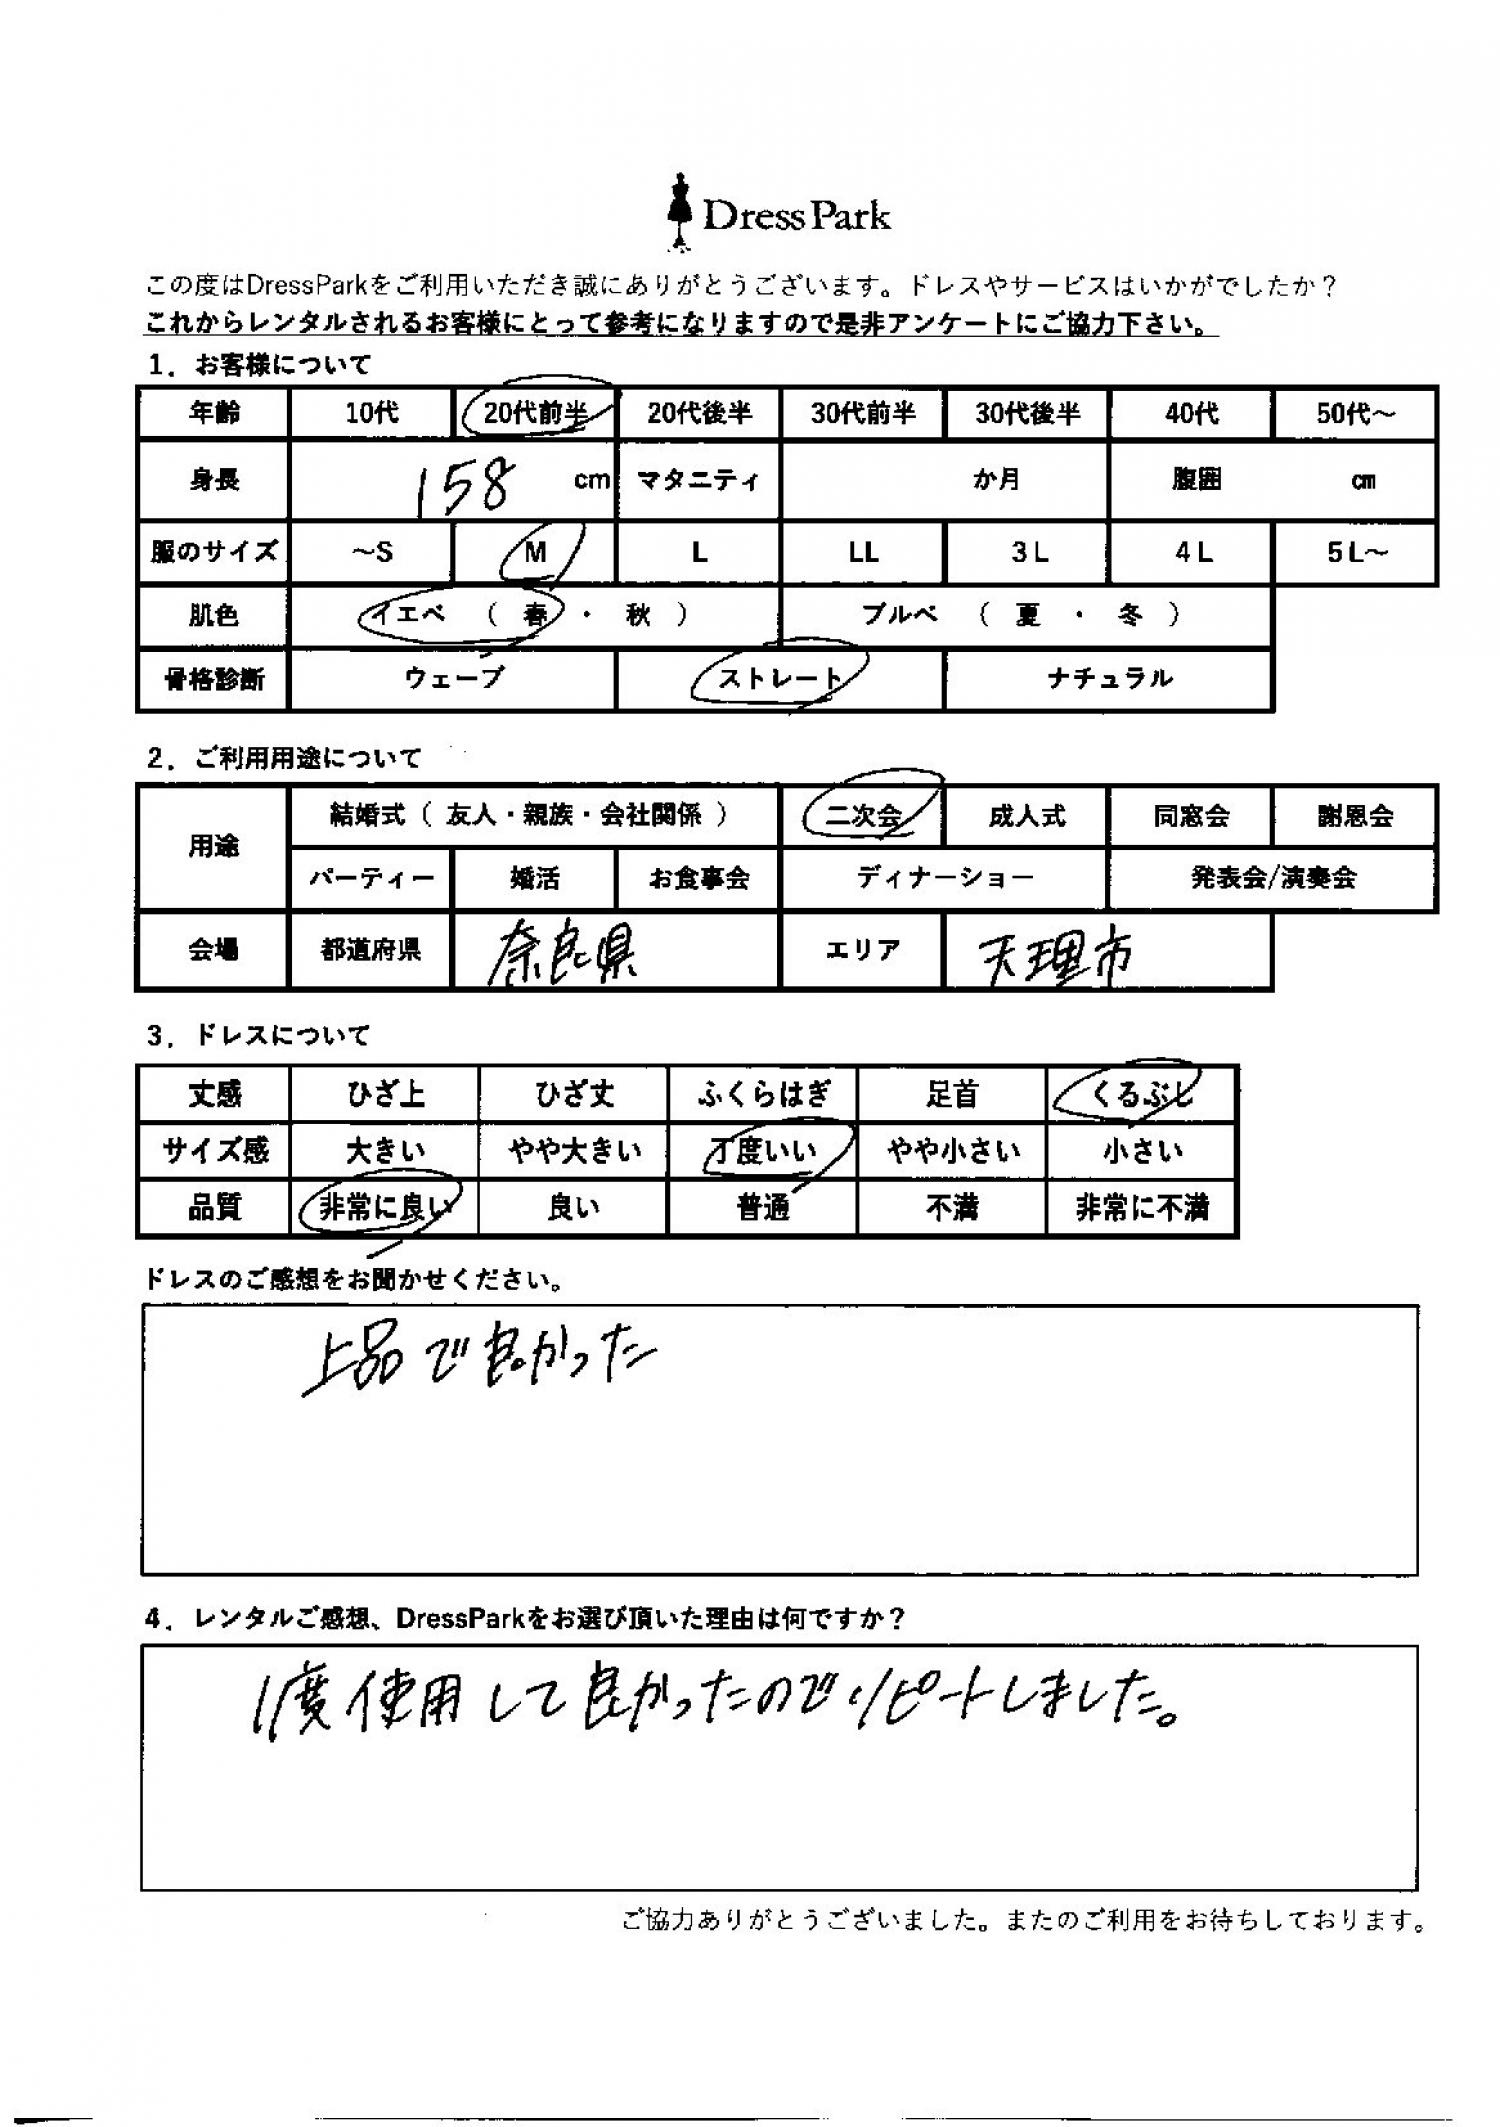 Dress Park
この度はDressParkをご利用いただき誠にありがとうございます。ドレスやサービスはいかがでしたか？
これからレンタルされるお客様にとって参考になりますので是非アンケートにご協力下さい。
1．お客様について
年齢 10代 20代前半 20代後半 30代前半 30代後半 40代 50代～
身長 158 cm マタニティ か月 腹囲 cm
服のサイズ ～S M L LL 3L 4L 5L～
肌色 イエベ （ 春 ・ 秋 ） ブルベ （ 夏 ・ 冬 ）
骨格診断 ウェーブ ストレート ナチュラル
2．ご利用用途について
用途 結婚式（ 友人・親族・会社関係 ） 二次会 成人式 同窓会 謝恩会
パーティー 婚活 お食事会 ディナーショー 発表会/演奏会
会場 都道府県 奈良県 エリア 天理市
3．ドレスについて
丈感 ひざ上 ひざ丈 ふくらはぎ 足首 くるぶし
サイズ感 大きい やや大きい 丁度いい やや小さい 小さい
品質 非常に良い 良い 普通 不満 非常に不満
ドレスのご感想をお聞かせください。
上品で良かった
4．レンタルご感想、DressParkをお選び頂いた理由は何ですか？
1度使用して良かったのでリピートしました。
ご協力ありがとうございました。またのご利用をお待ちしております。